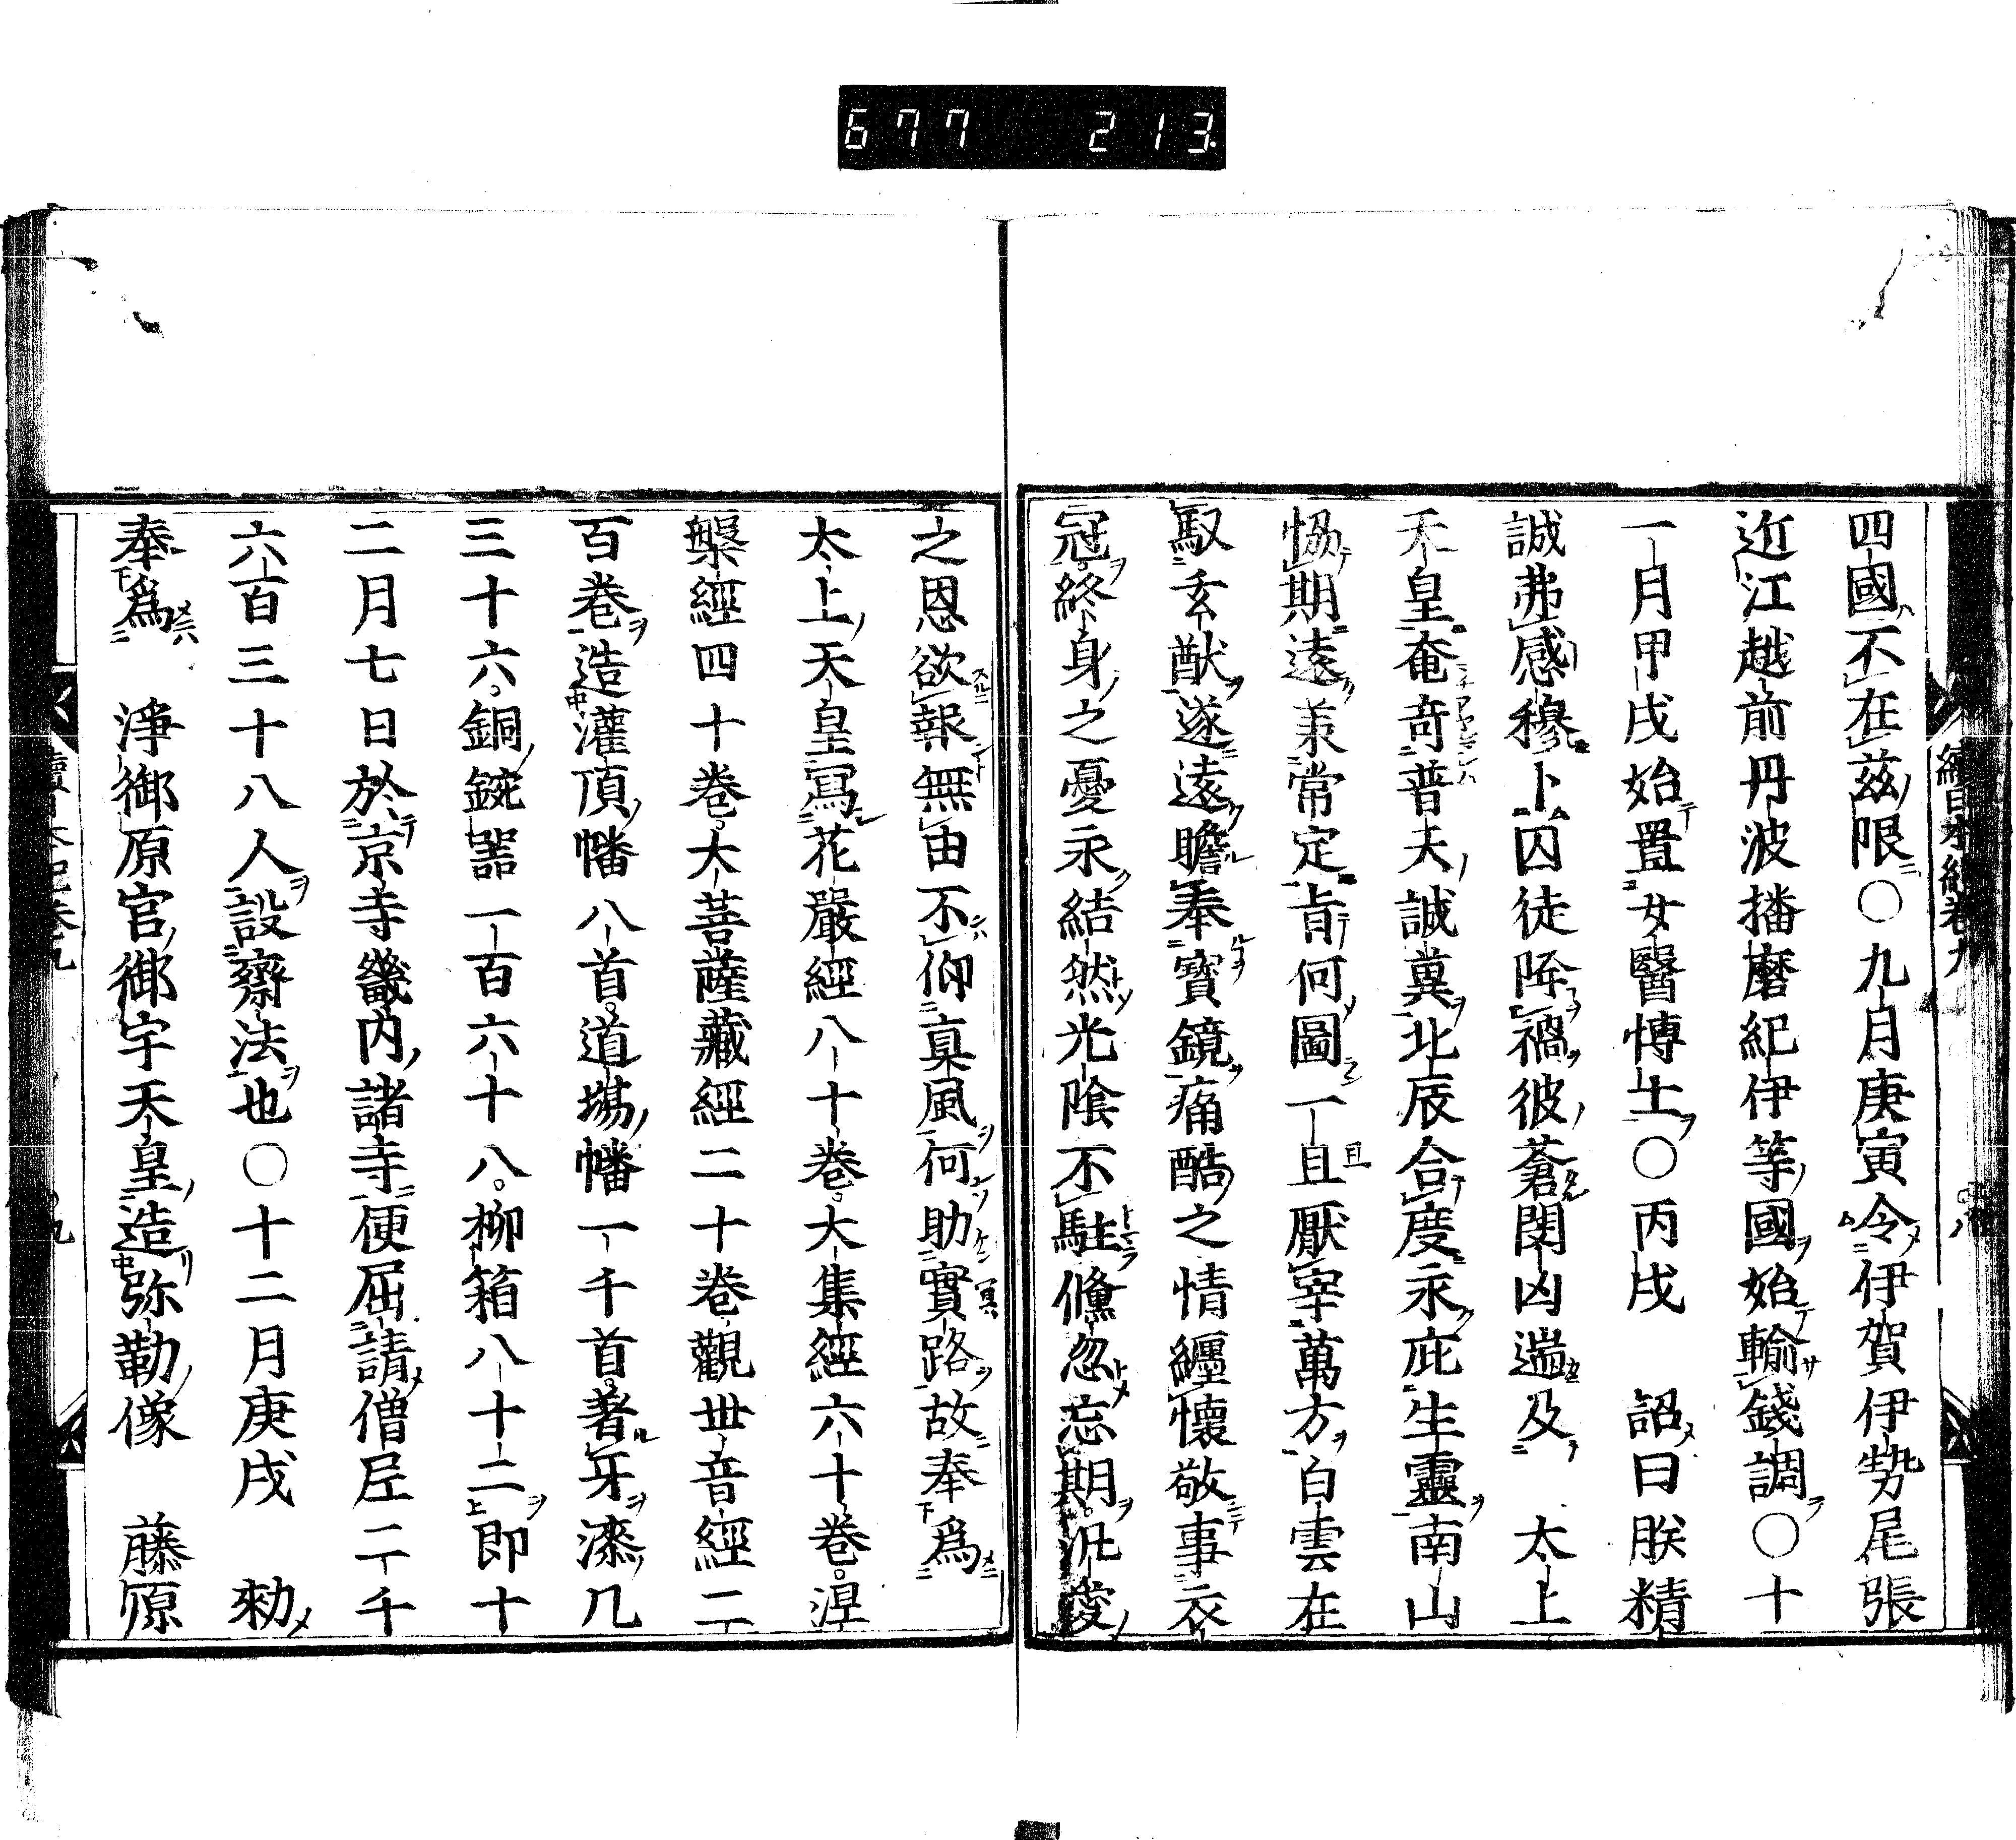 677 213
續日本紀卷九
四國不在茲限〇九月庚寅令伊賀伊勢尾張
近江越前丹波播磨紀伊等國始輸錢調〇十
一月甲戌始置女醫博士〇丙戌　詔曰朕精
誠弗感穆卜囚徒降禍彼蒼閔凶遄及　太上
天皇奄奇普天誠冀北辰合度永庇生靈南山
恊期遠兼常定省何圖一旦厭宰萬方白雲在
馭玄猷遂遠瞻奉寶鏡痛酷之情纏懷敬事衣
冠終身之憂永結然光陰不駐儵忽忘期汎愛
之恩欲報無由不仰真風何助實路故奉爲
太上天皇寫花嚴經八十卷大集經六十卷涅
槃經四十卷大菩薩藏經二十卷觀世音經二
百卷造灌頂幡八首道場幡一千首著牙漆几
三十六銅鋺器一百六十八柳箱八十二即十
二月七日於京寺畿內諸寺便屈請僧尼二千
六百三十八人設齋法也〇十二月庚戌　勑
奉爲　淨御原宮御宇天皇造弥勒像　藤原